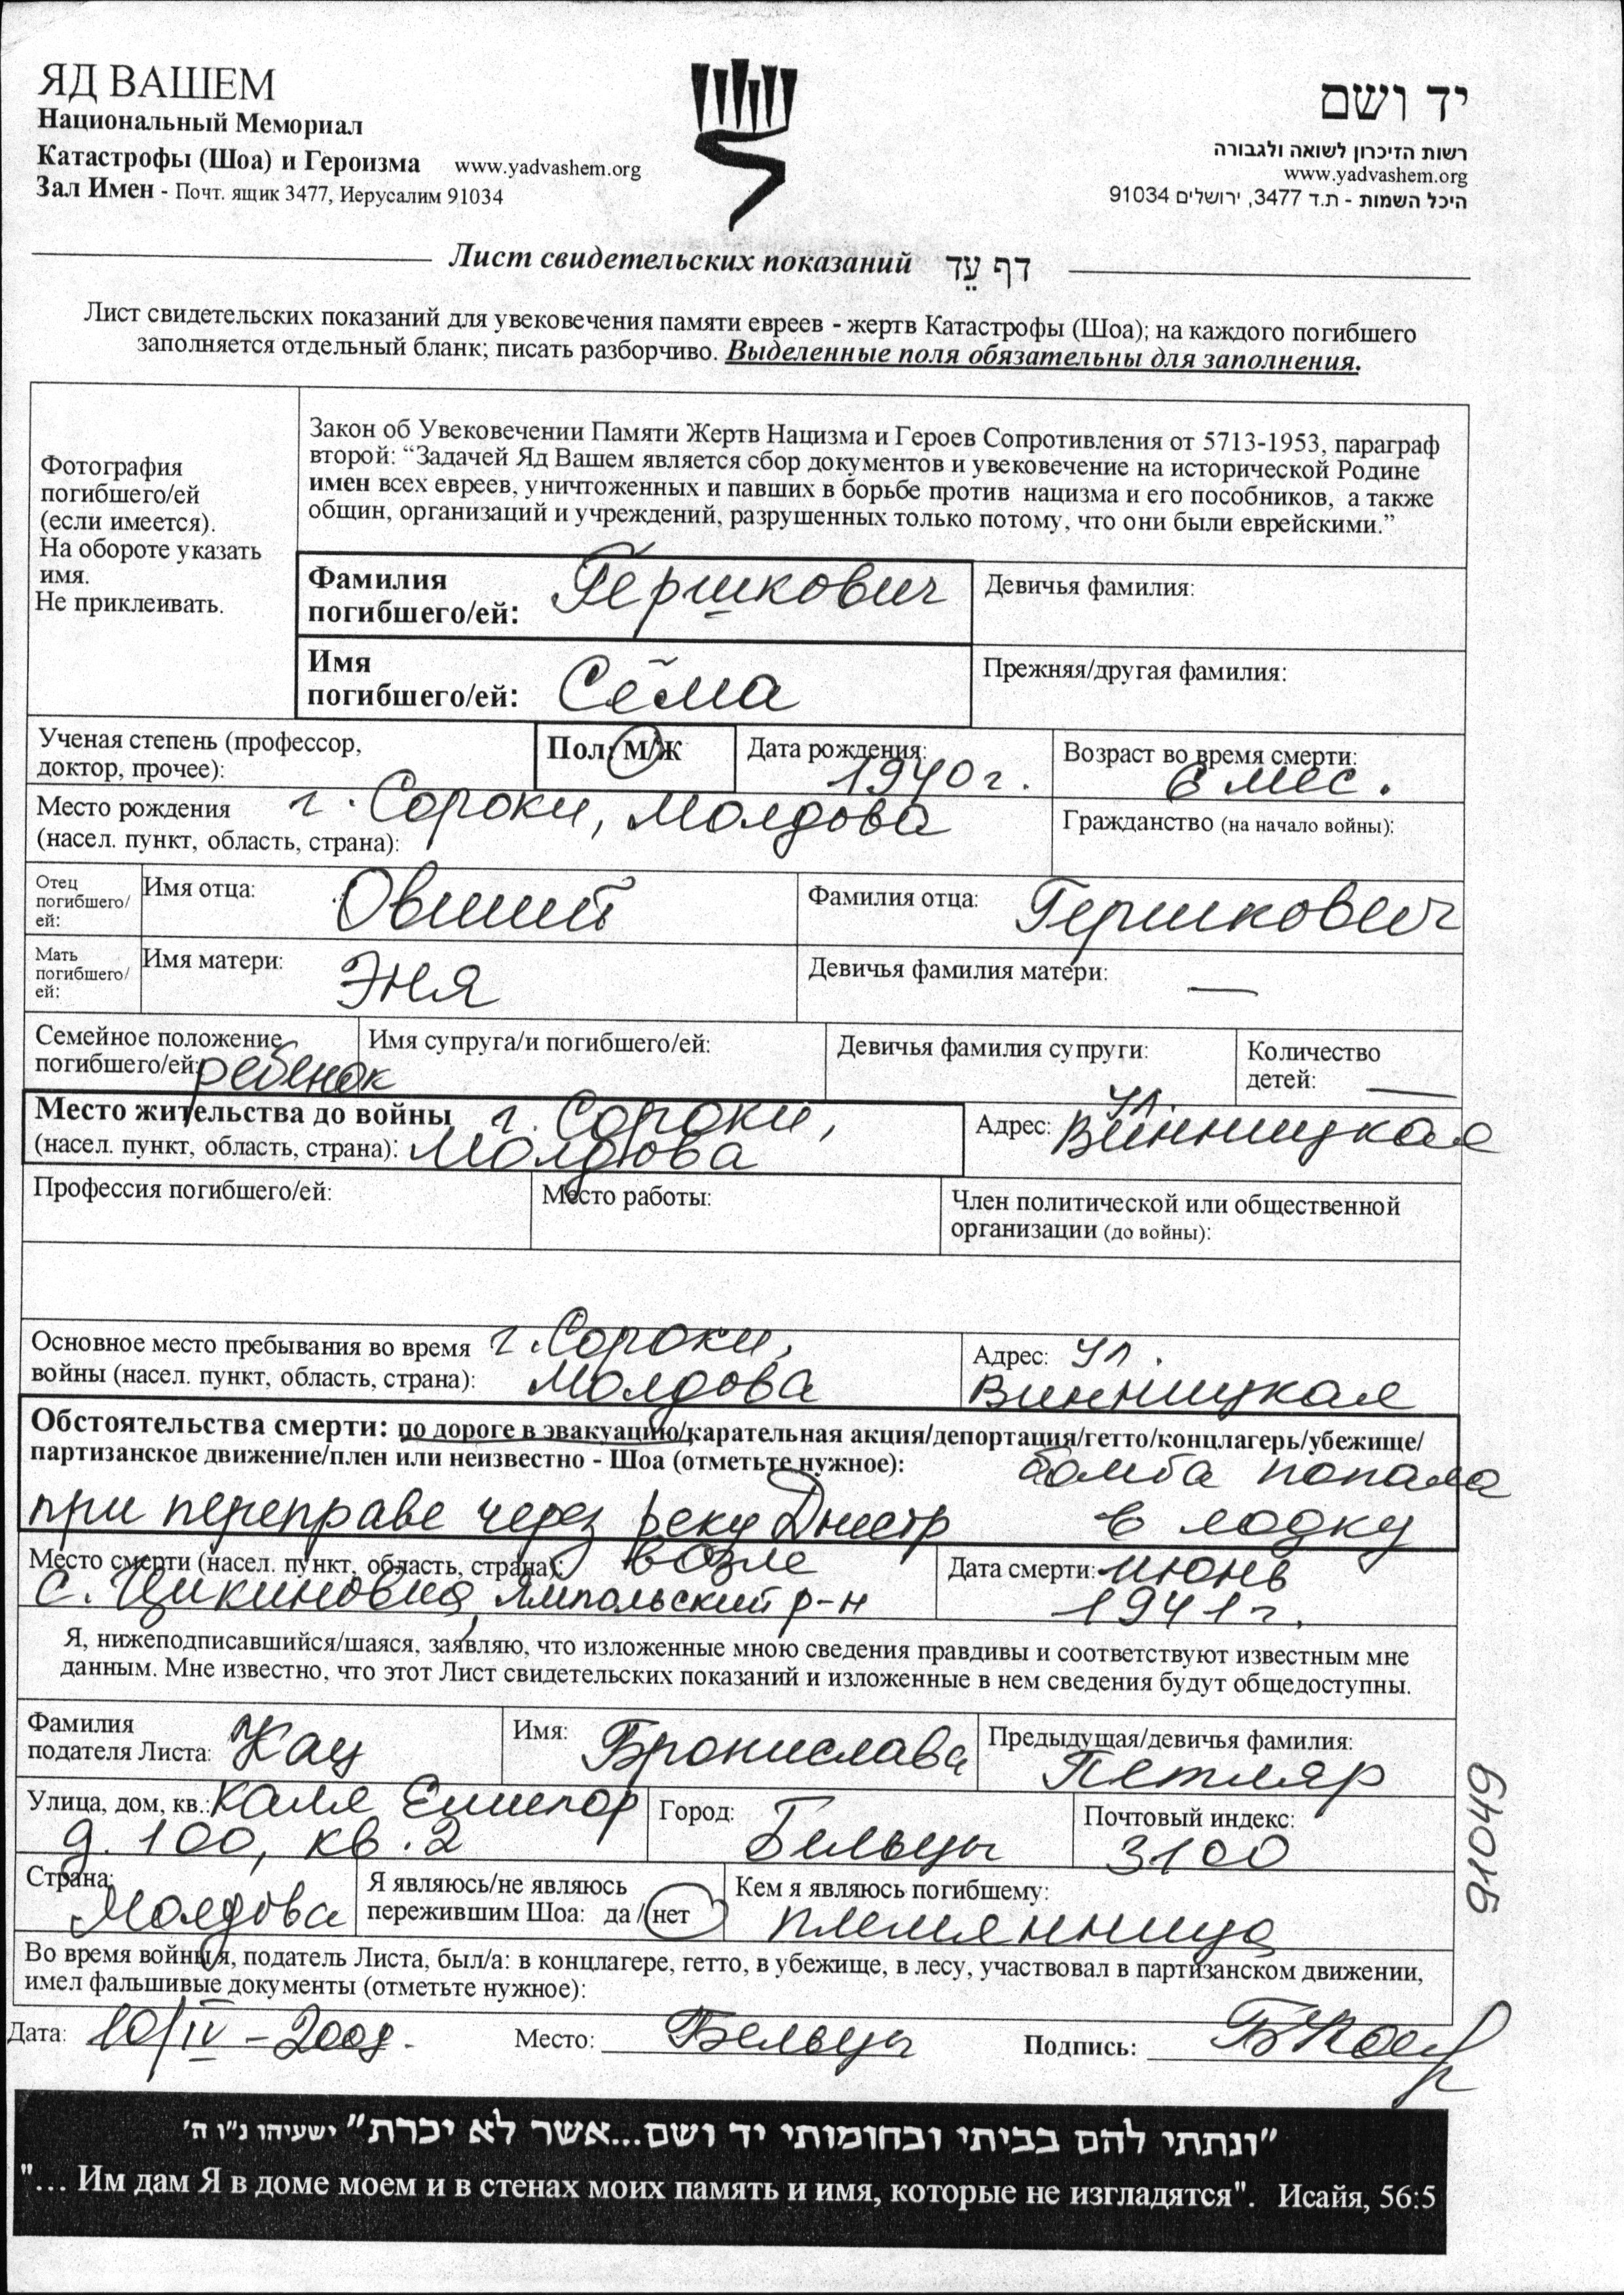 ЯД ВАШЕМ
Национальный Мемориал
Катастрофы (Шоа) и Героизма www.yadvashem.org
Зал Имен - Почт. ящик 3477, Иерусалим 91034
יד ושם
רשות הזיכרון לשואה ולגבורה
www.yadvashem.org
היכל השמות - ת.ד 3477, ירושלים 91034
Лист свидетельских показаний דף עֵד
Лист свидетельских показаний для увековечения памяти евреев - жертв Катастрофы (Шоа); на каждого погибшего
заполняется отдельный бланк; писать разборчиво. Выделенные поля обязательны для заполнения.
Фотография
погибшего/ей
(если имеется).
На обороте указать
имя.
Не приклеивать.
Закон об Увековечении Памяти Жертв Нацизма и Героев Сопротивления от 5713-1953, параграф
второй: “Задачей Яд Вашем является сбор документов и увековечение на исторической Родине
имен всех евреев, уничтоженных и павших в борьбе против нацизма и его пособников, а также
общин, организаций и учреждений, разрушенных только потому, что они были еврейскими.”
Фамилия
погибшего/ей: Гершкович
Девичья фамилия:
Имя
погибшего/ей: Сёма
Прежняя/другая фамилия:
Ученая степень (профессор,
доктор, прочее):
Пол: М/Ж
Дата рождения:
1940г.
Возраст во время смерти:
6 мес.
Место рождения г. Сороки, Молдова
(насел. пункт, область, страна):
Гражданство (на начало войны):
Отец
погибшего/
ей:
Имя отца: Овший
Фамилия отца: Гершкович
Мать
погибшего/
ей:
Имя матери: Эня
Девичья фамилия матери: —
Семейное положение
погибшего/ей: ребенок
Имя супруга/и погибшего/ей:
Девичья фамилия супруги:
Количество
детей: —
Место жительства до войны г. Сороки,
(насел. пункт, область, страна): Молдова
Адрес: ул.
Винницкая
Профессия погибшего/ей:
Место работы:
Член политической или общественной
организации (до войны):
Основное место пребывания во время г. Сороки,
войны (насел. пункт, область, страна): Молдова
Адрес: ул.
Винницкая
Обстоятельства смерти: по дороге в эвакуацию/карательная акция/депортация/гетто/концлагерь/убежище/
партизанское движение/плен или неизвестно - Шоа (отметьте нужное): бомба попала
при переправе через реку Днестр в лодку
Место смерти (насел. пункт, область, страна): возле
с. Цикиновка, Ямпольский р-н
Дата смерти: июнь
1941г.
Я, нижеподписавшийся/шаяся, заявляю, что изложенные мною сведения правдивы и соответствуют известным мне
данным. Мне известно, что этот Лист свидетельских показаний и изложенные в нем сведения будут общедоступны.
Фамилия
подателя Листа: Кац
Имя: Бронислава
Предыдущая/девичья фамилия:
Петляр
Улица, дом, кв.: Каля Ешилор
д. 100, кв. 2
Город:
Бельцы
Почтовый индекс:
3100
Страна:
Молдова
Я являюсь/не являюсь
пережившим Шоа: да / нет
Кем я являюсь погибшему:
племянница
Во время войны я, податель Листа, был/а: в концлагере, гетто, в убежище, в лесу, участвовал в партизанском движении,
имел фальшивые документы (отметьте нужное):
Дата: 10/IV – 2008. Место: Бельцы Подпись: БКац
91049
"ונתתי להם בביתי ובחומותי יד ושם...אשר לא יכרת" ישעיהו נ"ו ה'
"... Им дам Я в доме моем и в стенах моих память и имя, которые не изгладятся". Исайя, 56:5